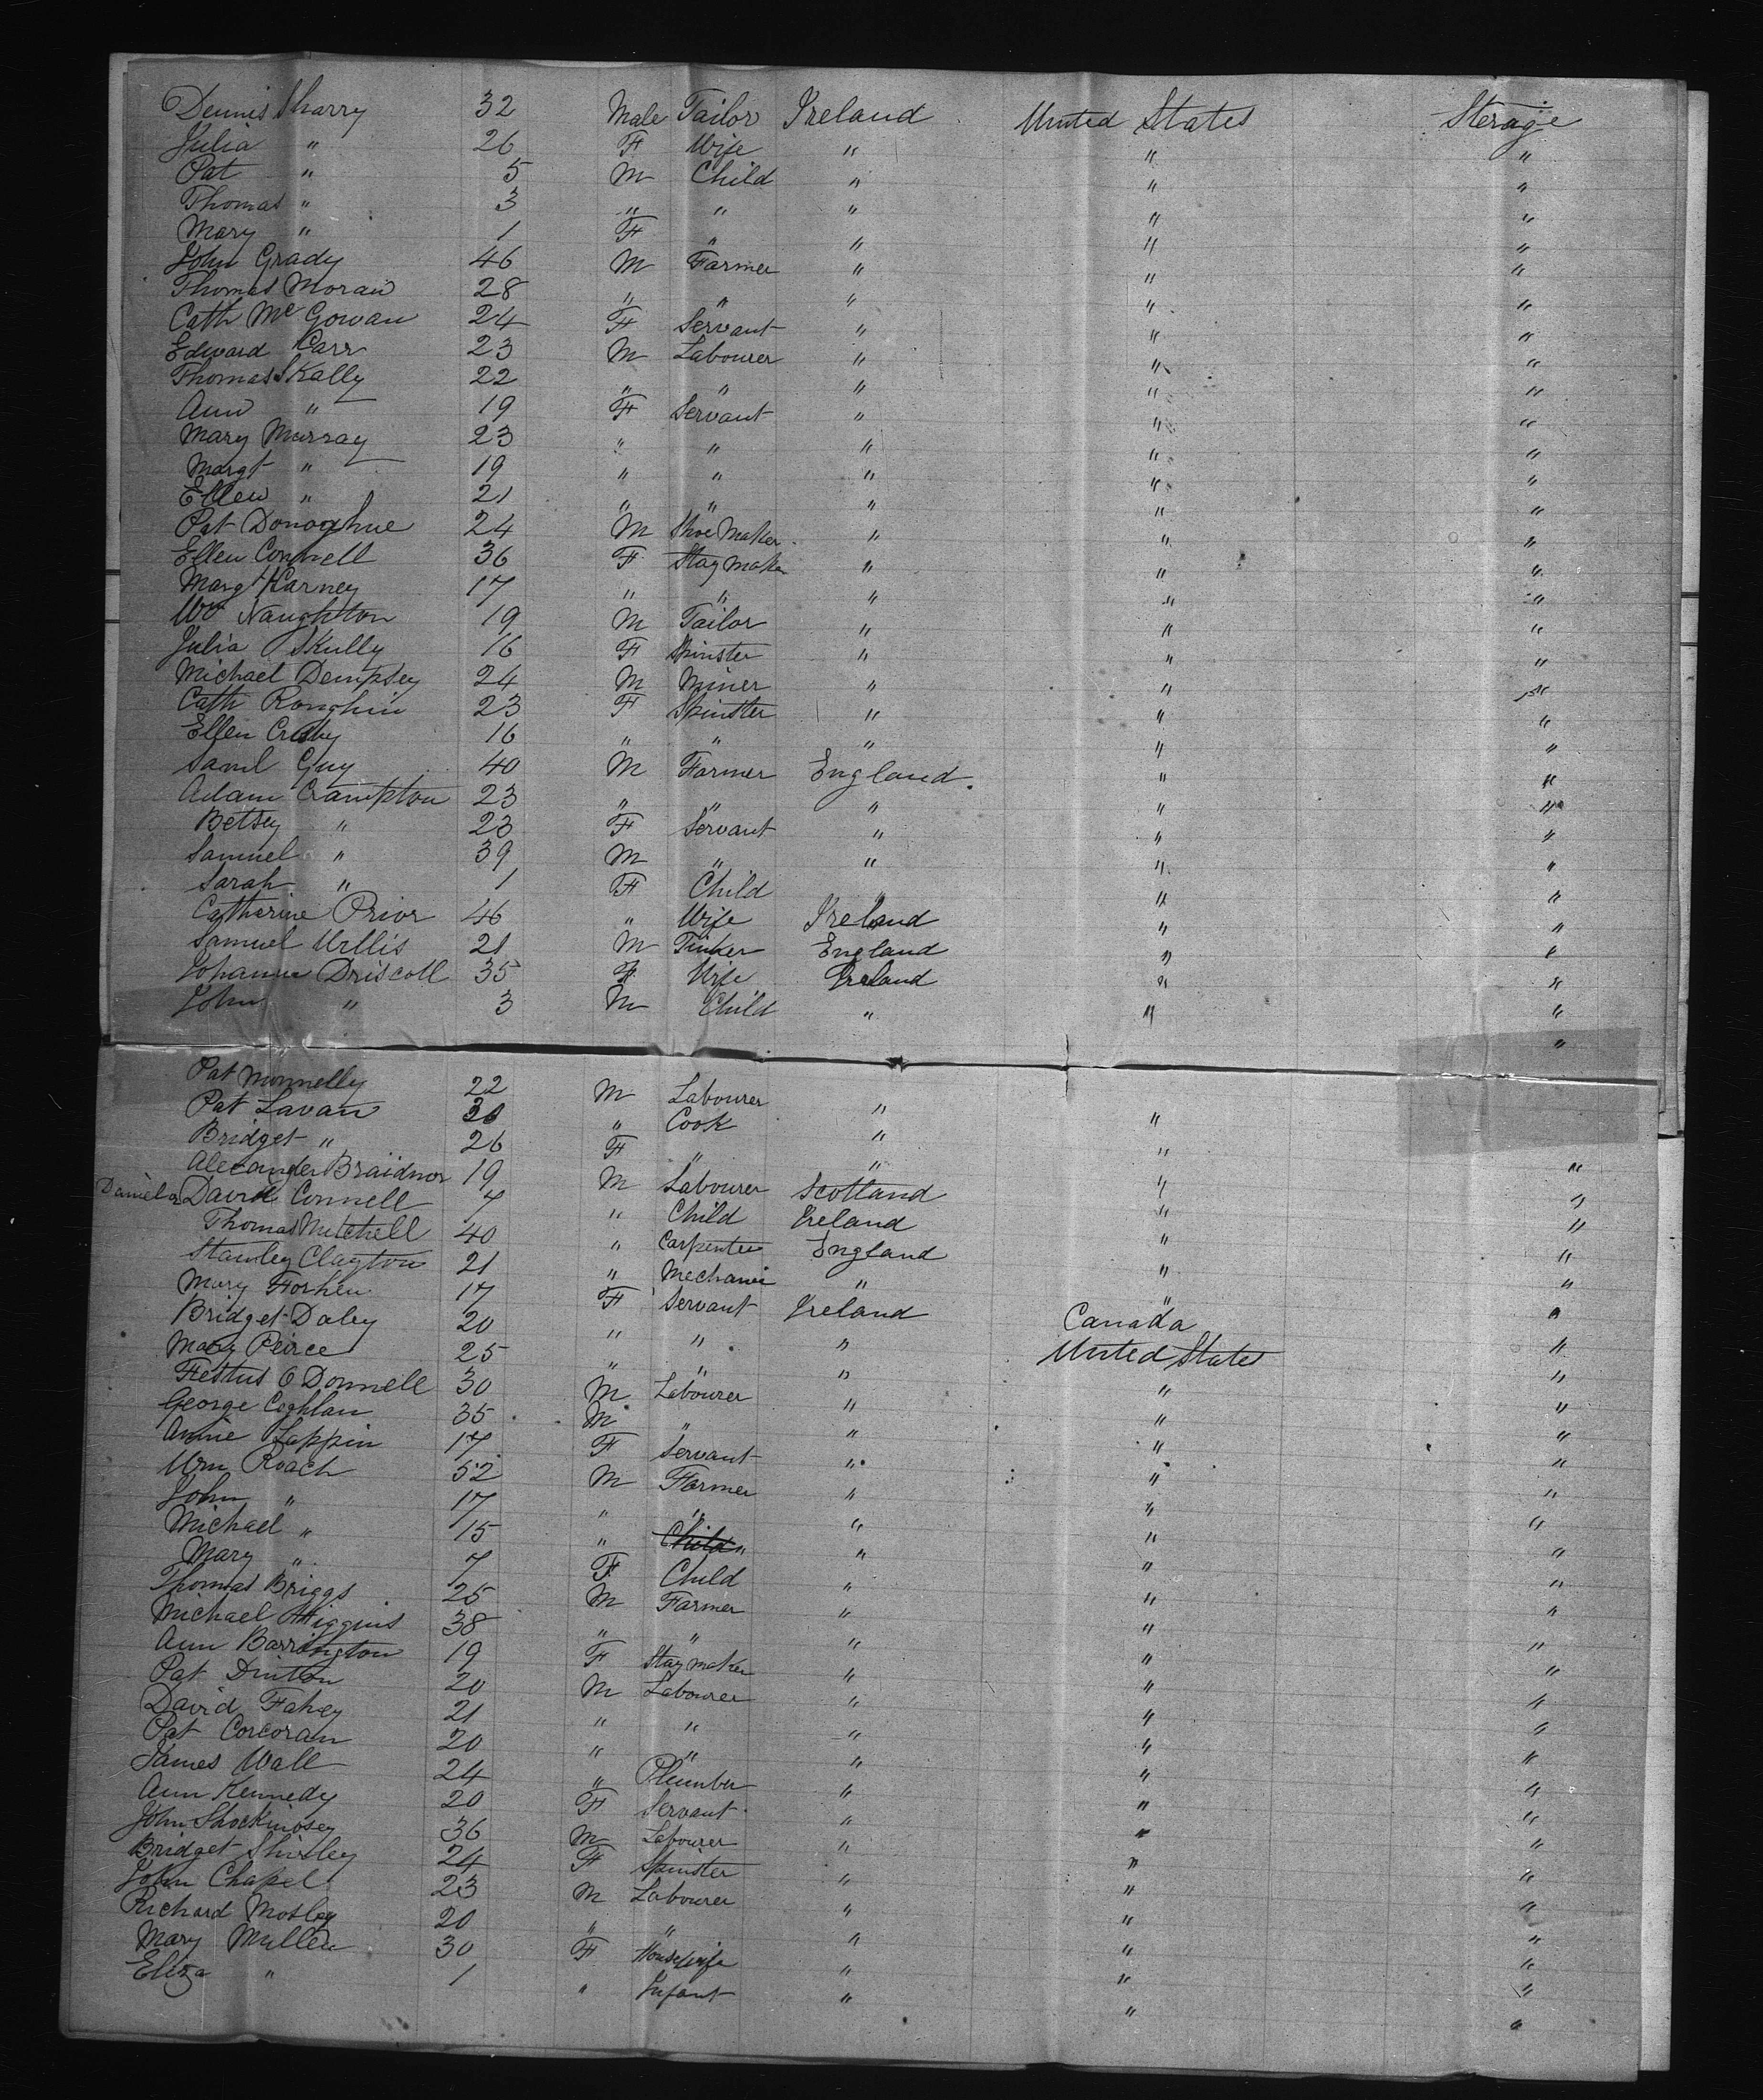 Dennis Sharry 32 Male Tailor Ireland United States Sterage
Julia " 26 F Wife " " "
Pat " 5 M Child " " "
Thomas " 3 " " " " "
Mary " 1 F " " " "
John Grady 46 M Farmer " " "
Thomas Moran 28 " " " " "
Cath McGowan 24 F Servant " " "
Edward Carr 23 M Labourer " " "
Thomas Skally 22 " " " " "
Ann " 19 F Servant " " "
Mary Murray 23 " " " " "
Margt " 19 " " " " "
Ellen " 21 " " " " "
Pat Donoghue 24 M Shoe Maker " " "
Ellen Connell 36 F Stay Maker " " "
Margt Karney 17 " " " " "
Wm Naughton 19 M Tailor " " "
Julia Skully 16 F Spinster " " "
Michael Dempsey 24 M Miner " " "
Cath Ronghin 23 F Spinster " " "
Ellen Crosby 16 " " " " "
Saml Guy 40 M Farmer England " "
Adam Crampton 23 " " " " "
Betsey " 23 F Servant " " "
Samuel " 39 M " " " "
Sarah " 1 F Child " " "
Catherine Prior 46 " Wife Ireland " "
Samuel Willis 21 M Tinker England " "
Johanna Driscoll 35 F Wife Ireland " "
John " 3 M Child " " "
Pat Munnelly 22 M Labourer " " "
Pat Lavan 30 " Cook " " "
Bridget " 26 F " " " "
Alexander Braidnor 19 M Labourer Scotland " "
Daniel or David Connell 7 " Child Ireland " "
Thomas Mitchell 40 " Carpenter England " "
Stanley Clayton 21 " Mechanic " " "
Mary Forhen 17 F Servant Ireland " "
Bridget Daley 20 " " " Canada "
Mary Peirce 25 " " " United States "
Festus O Donnell 30 M Labourer " " "
George Coghlan 35 M " " " "
Annie Lappin 17 F Servant " " "
Wm Roach 52 M Farmer " " "
John " 17 " " " " "
Michael " 15 " Child " " " "
Mary " 7 F Child " " "
Thomas Briggs 25 M Farmer " " "
Michael Higgins 38 " " " " "
Ann Barrington 19 F Stay maker " " "
Pat Dutton 20 M Labourer " " "
David Fahey 21 " " " " "
Pat Corcoran 20 " " " " "
James Wall 24 " Plumber " " "
Ann Kennedy 20 F Servant " " "
John 36 M Labourer " " "
Bridget Shirley 24 F Spinster " " "
John Chapel 23 M Labourer " " "
Richard Mosley 20 " " " " "
Mary Mullen 30 F Housewife " " "
Eliza " 1 " Infant " " "